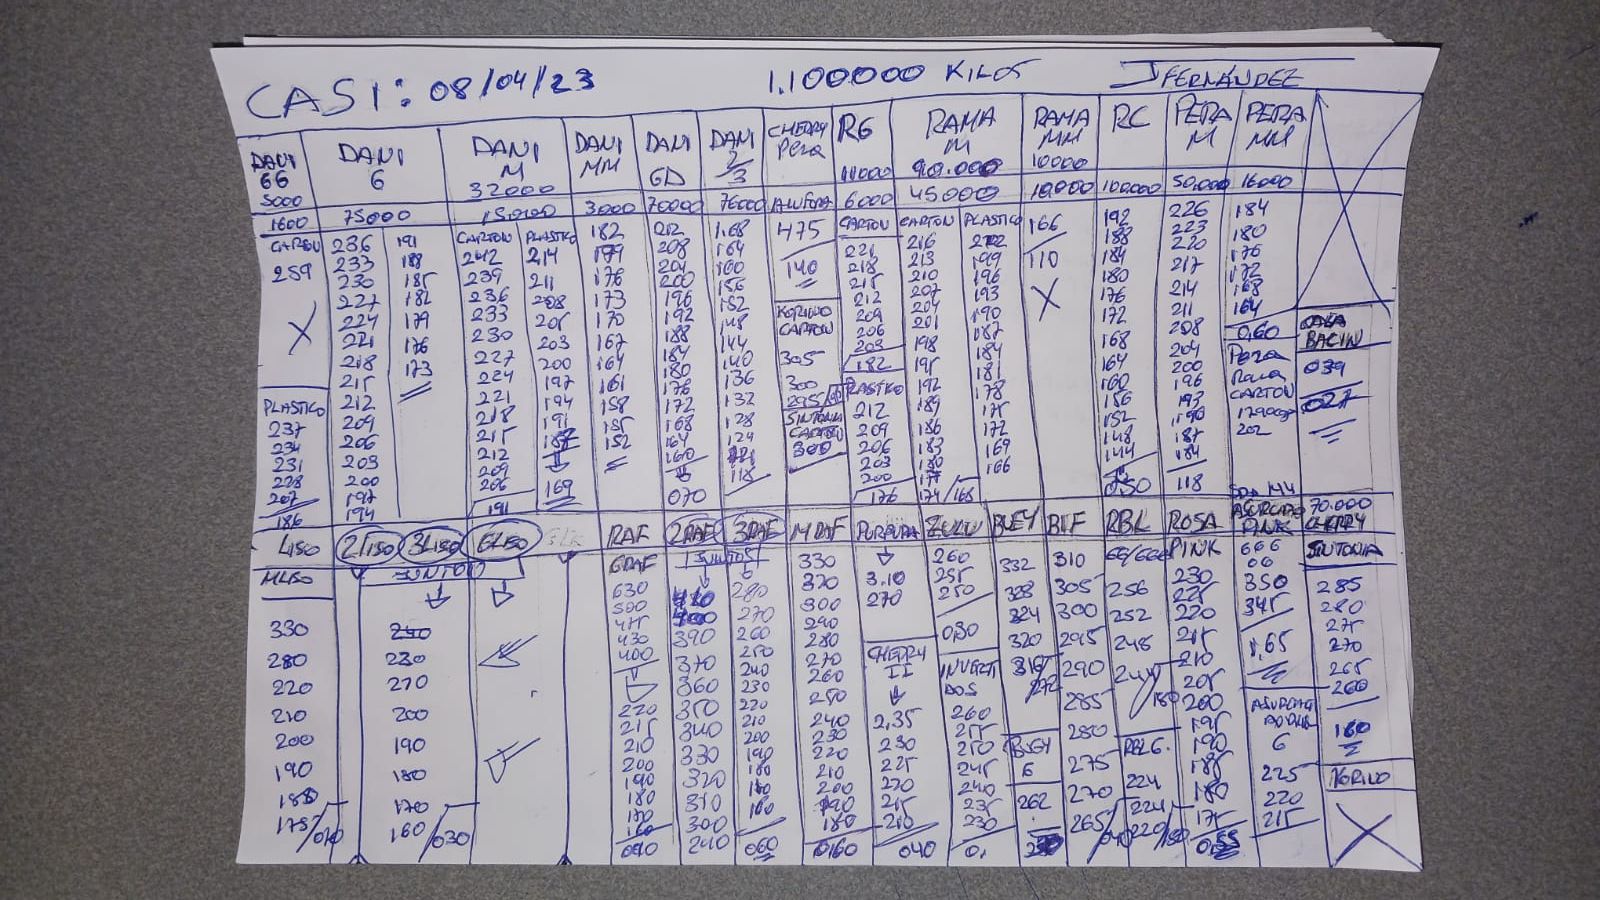 CASI: 08/04/23 1.100000 KILOS J FERNÁNDEZ
DANI 66 5000
DANI 6
DANI M 32000
DANI MM
DANI GD
DANI 2/3
CHERRY Pera
RG 11000
RAMA M 90.000
RAMA MM 10000
RC
PERA M
PERA MM
1600 75000 3000 70000 76000 6000 45000 10000 100.000 50.000 16000
CARTON
259
X
PLASTICO
237
234
231
228
207
186
236
233
230
227
224
221
218
215
212
209
206
203
200
197
194
191
188
185
182
179
176
173
CARTON
242
239
236
233
230
227
224
221
218
215
212
209
206
191
PLASTICO
214
211
208
205
203
200
197
194
191
187
169
182
179
176
173
170
167
164
161
158
155
152
212
208
204
200
196
192
188
184
180
176
172
168
164
160
070
168
164
160
156
152
148
144
140
136
132
128
124
121
118
475
140
CARTON
305
300
295
SINTONIA
CARTON
300
CARTON
221
218
215
212
209
206
203
182
PLASTICO
212
209
206
203
200
176
CARTON
216
213
210
207
204
201
198
195
192
189
186
183
180
177
174/168
PLASTICO
202
199
196
193
190
187
184
181
178
175
172
169
166
166
110
X
192
188
184
180
176
172
168
164
160
156
152
148
144
050
226
223
220
217
214
211
208
204
200
196
193
190
187
184
118
184
180
176
172
168
164
0,60
Pera
Rama
CARTON
202
BACIN
039
027
LISO
MLISO
330
280
220
210
200
190
180
175/010
2LISO 3LISO 6LISO
JUNTOS
240
230
270
200
190
180
170
160/030
RAF
GRAF
630
500
475
430
400
220
215
210
200
190
180
160
040
2RAF 3RAF
JUNTOS
390
370
360
350
340
330
320
310
300
240
280
270
260
250
240
230
220
210
200
190
180
160
060
MRAF
330
320
300
290
280
270
260
250
240
230
220
210
200
190
180
0,60
PURPURA
3.10
270
CHERRY
II
2,35
230
225
220
215
210
040
ZULU
260
255
250
030
INVERTI
DOS
260
255
250
245
240
235
230
BUEY
332
328
324
320
316
BUEY
6
262
BIF
310
305
300
295
290
285
280
275
270
265
RBL
256
252
248
244/180
RBL6.
224
224
220/180
ROSA
PINK
230
225
220
215
210
205
200
195
190
185
180
175
PINK
666
66
350
345
1,65
6
225
220
215
70.000
CHERRY
SINTONIA
285
280
275
270
265
260
160
X